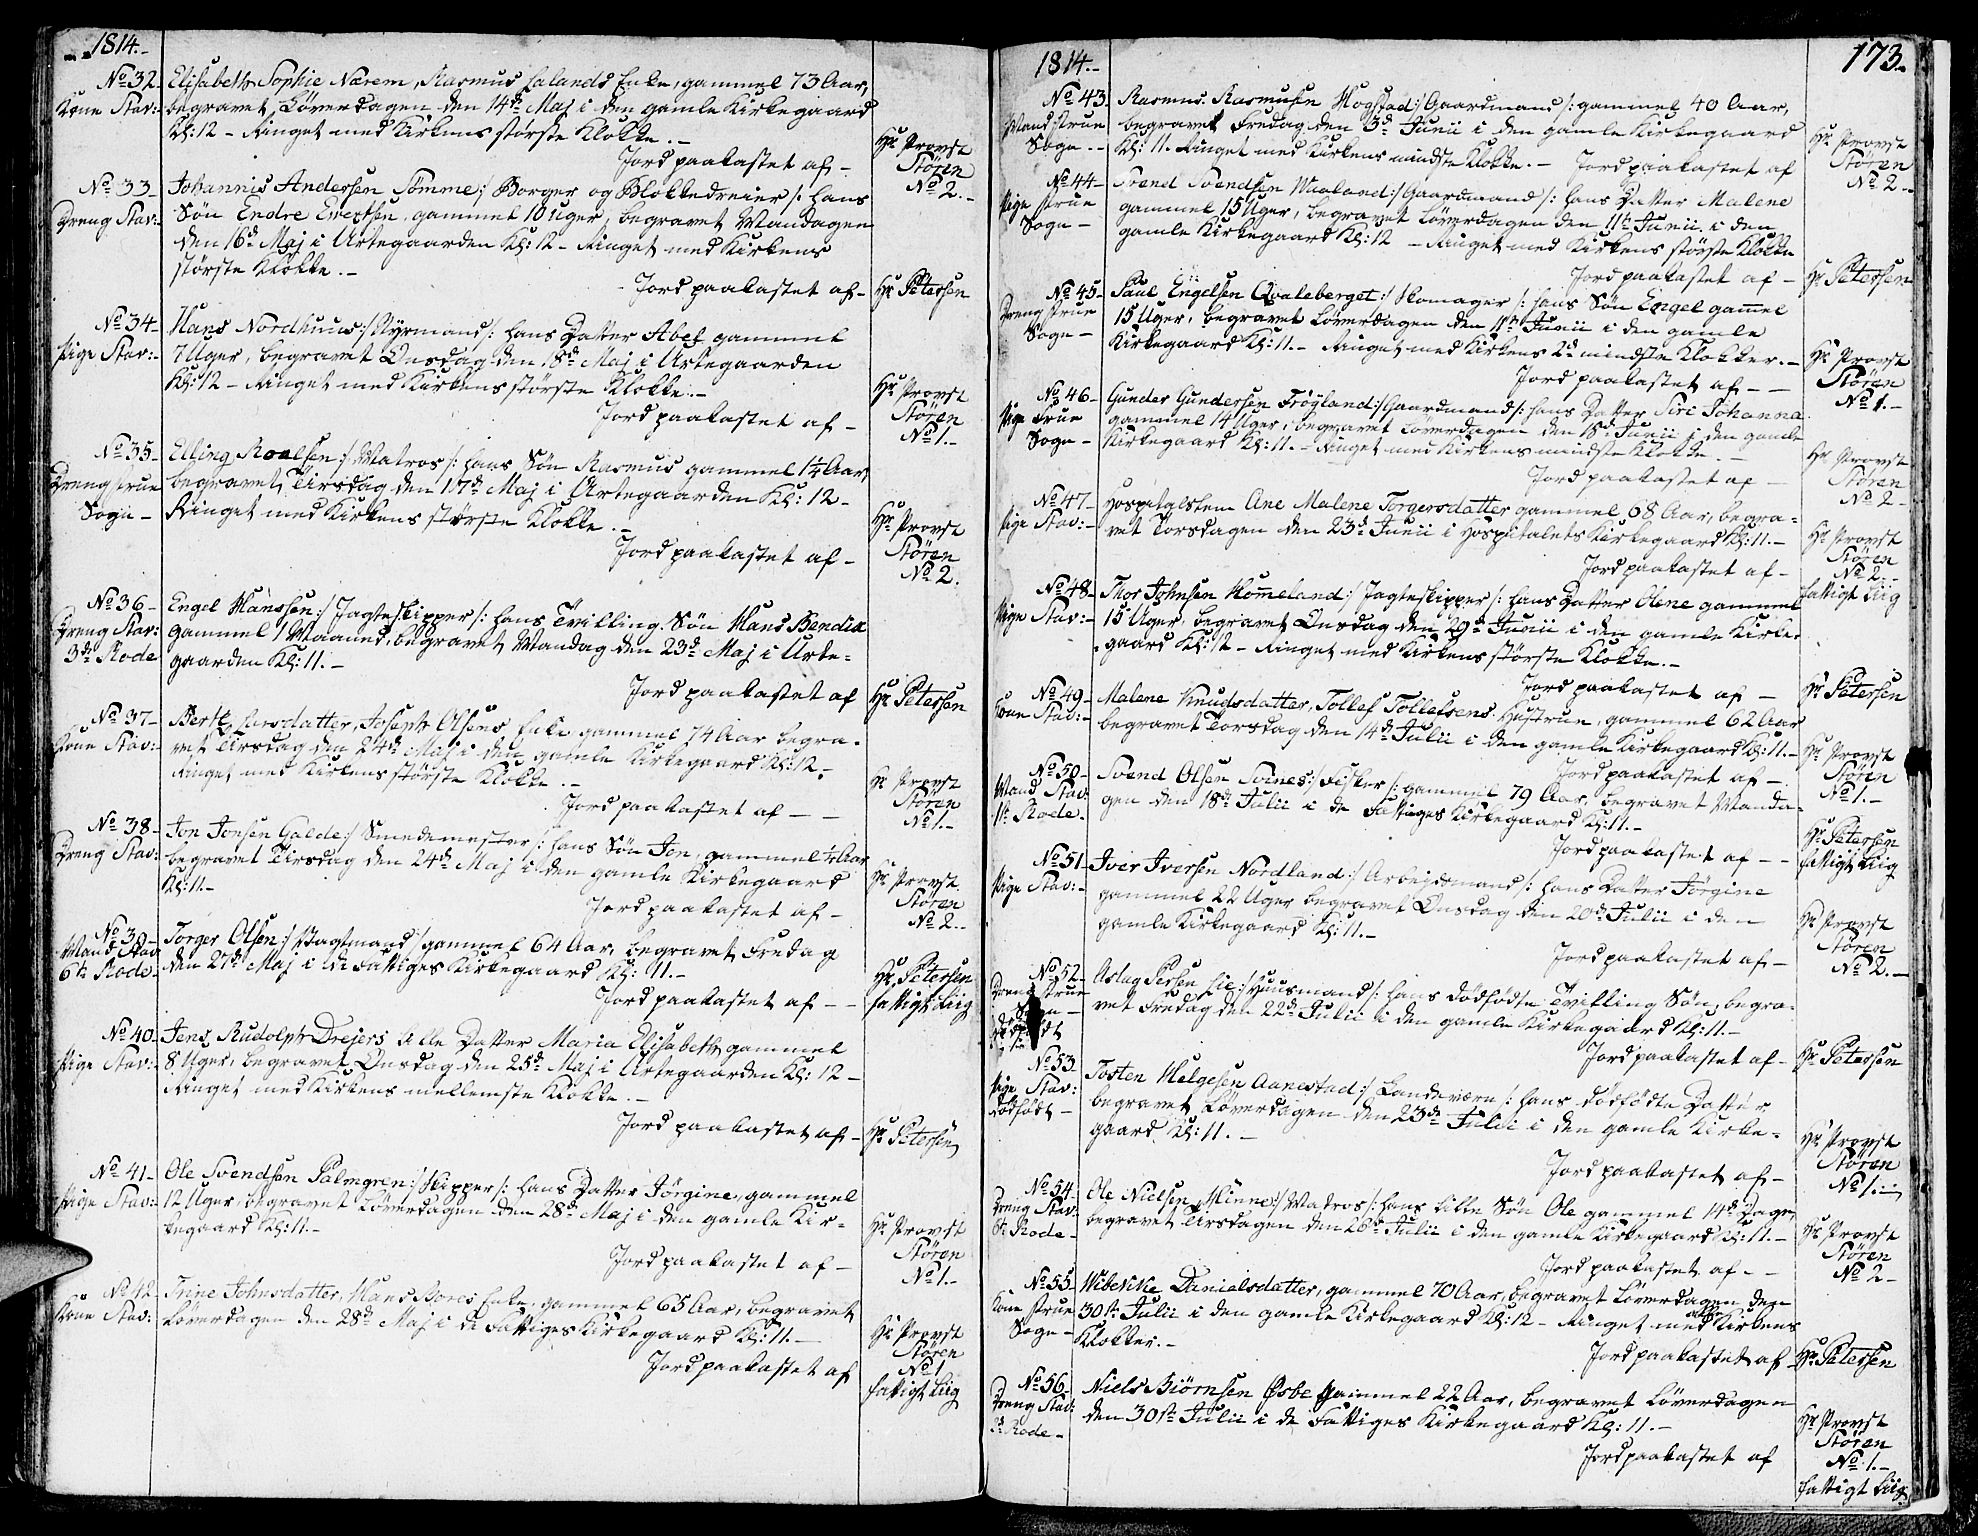 1814.-
No 32. Elisabeth Sophie Nærem, Rasmus Lalands Enke, gammel 73 Aar,
Kone Stav: begravet Løverdagen den 14de Maj i den gamle Kirkegaard
Kl: 12 - Ringet med Kirkens største Klokke.-
Jord paakastet af - Hr Provst Støren No 2.-
No 33 Johannis Andersen Tømme :/ Borger og Blokkedreier /: hans
Dreng Stav: Søn Endre Evertsen, gammel 10 Uger, begravet Mandagen
den 16de Maj i Urtegaarden Kl: 12 - Ringet med Kirkens
største Klokke.-
Jord paakastet af - Hr Petersen
No 34 - Hans Nordhuus :/ Styrmand /: hans Datter Abel gammel
Pige Stav:- 7 Uger, begravet Onsdag den 18de Maj i Urtegaarden
Kl: 12 - Ringet med Kirkens største Klokke.-
Jord paakastet af - Hr Provst Støren No 1.-
No 35- Elling Roalsen :/ Matros /: hans Søn Rasmus gammel 1¼ Aar,
Dreng Frue begravet Tirsdag den 17de Maj i Urtegaarden Kl: 12 -
Sogn - Ringet med Kirkens største Klokke.-
Jord paakastet af - Hr Provst Støren No 2.
No 36 - Engel Hanssen :/ Jagteskipper /: hans Tvilling Søn Hans Bendix
Dreng Stav: gammel 1 Maaned, begravet Mandag den 23de Maj i Urte-
3de Rode gaarden Kl: 11.-
Jord paakastet af Hr Petersen
No 37- Berte Larsdatter, Joseph Olsens Enke gammel 74 Aar begra-
Kone Stav:- vet Tirsdag den 24de Maj i den gamle Kirkegaard Kl: 12.
Ringet med Kirkens største Klokke.-
Jord paakastet af - - Hr Provst Støren No 1.-
No 38- Jon Jonsen Galde :/ Smedemester /: hans Søn Jon, gammel ¼ Aar
Dreng Stav: begravet Tirsdag den 24de Maj i den gamle Kirkegaard
Kl: 11.-
Jord paakastet af - Hr Provst Støren No 2.-
No 39- Torger Olsen :/ Vagtmand /: gammel 64 Aar, begravet Fredag
Mand Stav den 27de Maj i de Fattiges Kirkegaard Kl: 11.-
6te Rode- Jord paakastet af - - Hr Petersen fattigt Liig
No 40. Jens Rudolph Drejers lille Datter Maria Elisabeth gammel
Pige Stav:- 8 Uger, begravet Onsdag den 25de Maj i Urtegaarden Kl: 12 -
Ringet med Kirkens mellemste Klokke.-
Jord paakastet af - Hr Petersen
No 41- Ole Svendsen Palmgren :/ Skipper /: hans Datter Jørgine, gammel
Pige Stav: 12 Uger, begravet Løverdagen den 28de Maj i den gamle Kir-
kegaard Kl: 11.-
Jord paakastet af - Hr Provst Støren No 1.-
No 42- Trine Johnsdatter, Hans Bores Enke, gammel 65 Aar, begravet
Kone Stav: Løverdagen den 28de Maj i de Fattiges Kirkegaard Kl: 11.-
Jord paakastet af Hr Provst Støren No 1 fattigt Liig
173.
1814.-
No 43. Rasmus Rasmusen Hogstad :/ Gaardmand /: gammel 40 Aar,
Mand Frue begravet Fredag den 3de Junii i den gamle Kirkegaard
Sogn.- Kl: 11. Ringet med Kirkens mindste Klokke.- Jord paakastet af Hr Provst Støren No 2.-
No 44- Svend Svendsen Waaland :/ Gaardmand /: hans Datter Malene
Pige Frue gammel 15 Uger, begravet Løverdagen den 11te Junii i den
Sogn - gamle Kirkegaard Kl: 12 - Ringet med Kirkens største Klokke
Jord paakastet af - Hr Petersen
No 45- Paul Engelsen Qvaleberget :/ Skomager /: hans Søn Engel gammel
Dreng Frue 15 Uger, begravet Løverdagen den 11te Junii i den gamle
Sogn - Kirkegaard Kl: 11.- Ringet med Kirkens 2de mindste Klokker.-
Jord paakastet af - - Hr Provst Støren No 1.-
No 46- Gunder Gundersen Frøyland :/ Gaardmand /: hans Datter Siri Johanna
Pige Frue gammel 14 Uger, begravet Løverdagen den 18de Junii i den gamle
Sogn - Kirkegaard Kl: 11.- Ringet med Kirkens mindste Klokke.-
Jord paakastet af - Hr Provst Støren No 2-
No 47- Hospitalslem Ane Malene Torgersdatter gammel 68 Aar, begra-
Pige Stav:- vet Torsdagen den 23de Junii i Hospitalets Kirkegaard Kl: 11.-
Jord paakastet af - Hr Provst Støren No 2- fattigt Liig
No 48- Thor Johnsen Homeland :/ Jagteskipper /: hans Datter Olene gammel
Pige Stav:- 15 Uger, begravet Onsdag den 29de Junii i den gamle Kirke-
gaard Kl: 12 - Ringet med Kirkens største Klokke.-
Jord paakastet af - Hr Petersen
No 49- Malene Knudsdatter, Tollef Tollefsens Hustrue, gammel 62 Aar
Kone Stav:- begravet Torsdag den 14de Julii i den gamle Kirkegaard Kl: 11.-
Jord paakastet af - Hr Provst Støren No 1.-
No 50- Svend Olsen Svines :/ Fisker /: gammel 79 Aar, begravet Manda-
Mand Stav: gen den 18de Julii i de Fattiges Kirkegaard Kl: 11.-
1te Rode. Jord paakastet af - - Hr Petersen fattigt Liig
No 51 Iver Iversen Nordland :/ Arbejdsmand /: hans Datter Jørgine
Pige Stav:- gammel 22 Uger begravet Onsdag den 20de Julii i den
gamle Kirkegaard Kl: 11.-
Jord paakastet af - Hr Provst Støren No 2.-
No 52- Aslag Persen Lie :/ Huusmand /: hans dødfødte Tvilling Søn, begra-
Dreng Frue vet Fredag den 22de Julii i den gamle Kirkegaard Kl: 11.-
Sogn - dødfødt
Jord paakastet af - Hr Petersen
No 53 Tosten Helgesen Aanestad :/ Landeværn /: hans dødfødte Datter,
Pige Stav: begravet Løverdagen den 23de Julii i den gamle Kirke-
dødfødt - gaard Kl: 11.-
Jord paakastet af - Hr Provst Støren No 1.-
No 54- Ole Nielsen Hinne :/ Matros /: hans lille Søn Ole gammel 14de Dage,
Dreng Stav: begravet Tirsdagen den 26de Julii i den gamle Kirkegaard Kl: 11.-
Rode- Jord paakastet af - - Hr Provst Støren No 2-
No 55- Wibekke Danielsdatter, gammel 70 Aar, begravet Løverdagen den
Kone Frue 30te Julii i den gamle Kirkegaard Kl: 12 - Ringet med alle Kirkens
Sogn- Klokker.-
Jord paakastet af Hr Petersen
No 56- Niels Biørnsen Øsbe gammel 22 Aar, begravet Løverdagen
Dreng Stav: den 30te Julii i de Fattiges Kirkegaard Kl: 11.-
Rode- Jord paakastet af Hr Provst Støren No 1.- fattigt Liig